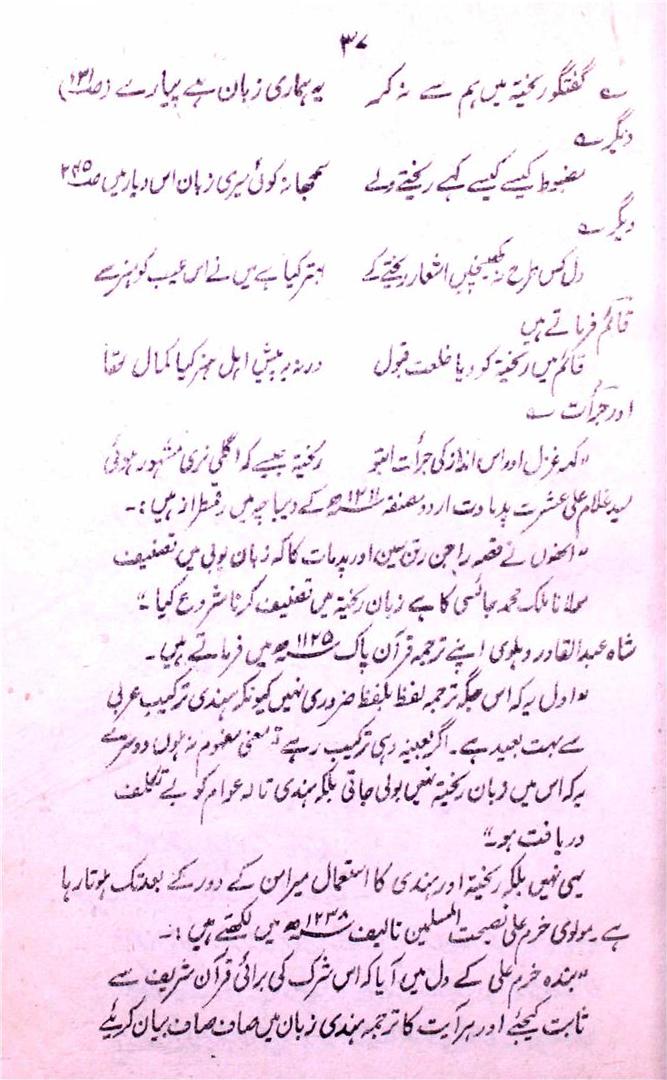 ۳۷
؎ گفتگو ریختہ میں ہم سے نہ کر یہ ہماری زبان ہے پیارے (ص۱۳۱)
دیگر ؎
مضبوط کیسے کیسے کہے ریختے ولے سمجھا نہ کوئی میری زبان اس دیار میں ص۲۴۵
دیگر ؎
دل کس طرح نہ کھینچیں اشعار ریختے کے بہتر کیا ہے میں نے اس عیب کو ہنر سے
قائم فرماتے ہیں
قائم میں ریختہ کو دیا خلعت قبول ورنہ یہ پیش اہل ہنر کیا کمال تھا
اور جرأت ؎
"کہہ غزل اور اس انداز کی جرأت اب تو ریختہ جیسے کہ اگلی تری مشہور ہوئی
سید غلام علی عشرت پدماوت اردو مصنفہ ۱۲۱۱ھ کے دیباچہ میں رقمطراز ہیں :-
"انھوں نے قصہ راجن رتن سین اور پدمات کا کہ زبان پوبی میں تصنیف
مولانا ملک محمد جائسی کا ہے زبان ریختہ میں تصنیف کرنا شروع کیا"
شاہ عبدالقادر دہلوی اپنے ترجمہ قرآن پاک ۱۱۲۵ھ میں فرماتے ہیں۔
"اول یہ کہ اس جگہ ترجمہ لفظ بلفظ ضروری نہیں کیونکہ ہندی ترکیب عربی
سے بہت بعید ہے۔ اگر بعینہ وہی ترکیب رہے تو معنی مفہوم نہ ہوں دوسرے
یہ کہ اس میں زبان ریختہ نہیں بولی جاتی بلکہ ہندی تا کہ عوام کو بے تکلف
دریافت ہو۔"
یہی نہیں بلکہ ریختہ اور ہندی کا استعمال میرامن کے دور کے بعد تک ہوتا رہا
ہے۔ مولوی خرم علی نصیحت المسلمین تالیف ۱۲۳۸ھ میں لکھتے ہیں :-
"بندہ خرم علی کے دل میں آیا کہ اس شرک کی برائی قرآن شریف سے
ثابت کیجئے اور ہر آیت کا ترجمہ ہندی زبان میں صاف صاف بیان کریئے